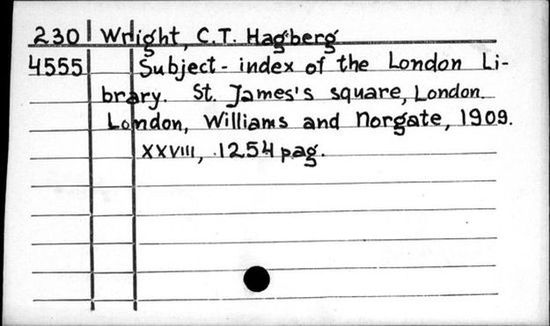 230 Wright, C.T. Hagberg
4555 Subject-index of the London Li-
brary. St. James's square, London
London, Williams and Norgate, 1909.
XXVIII, 1254 pag.